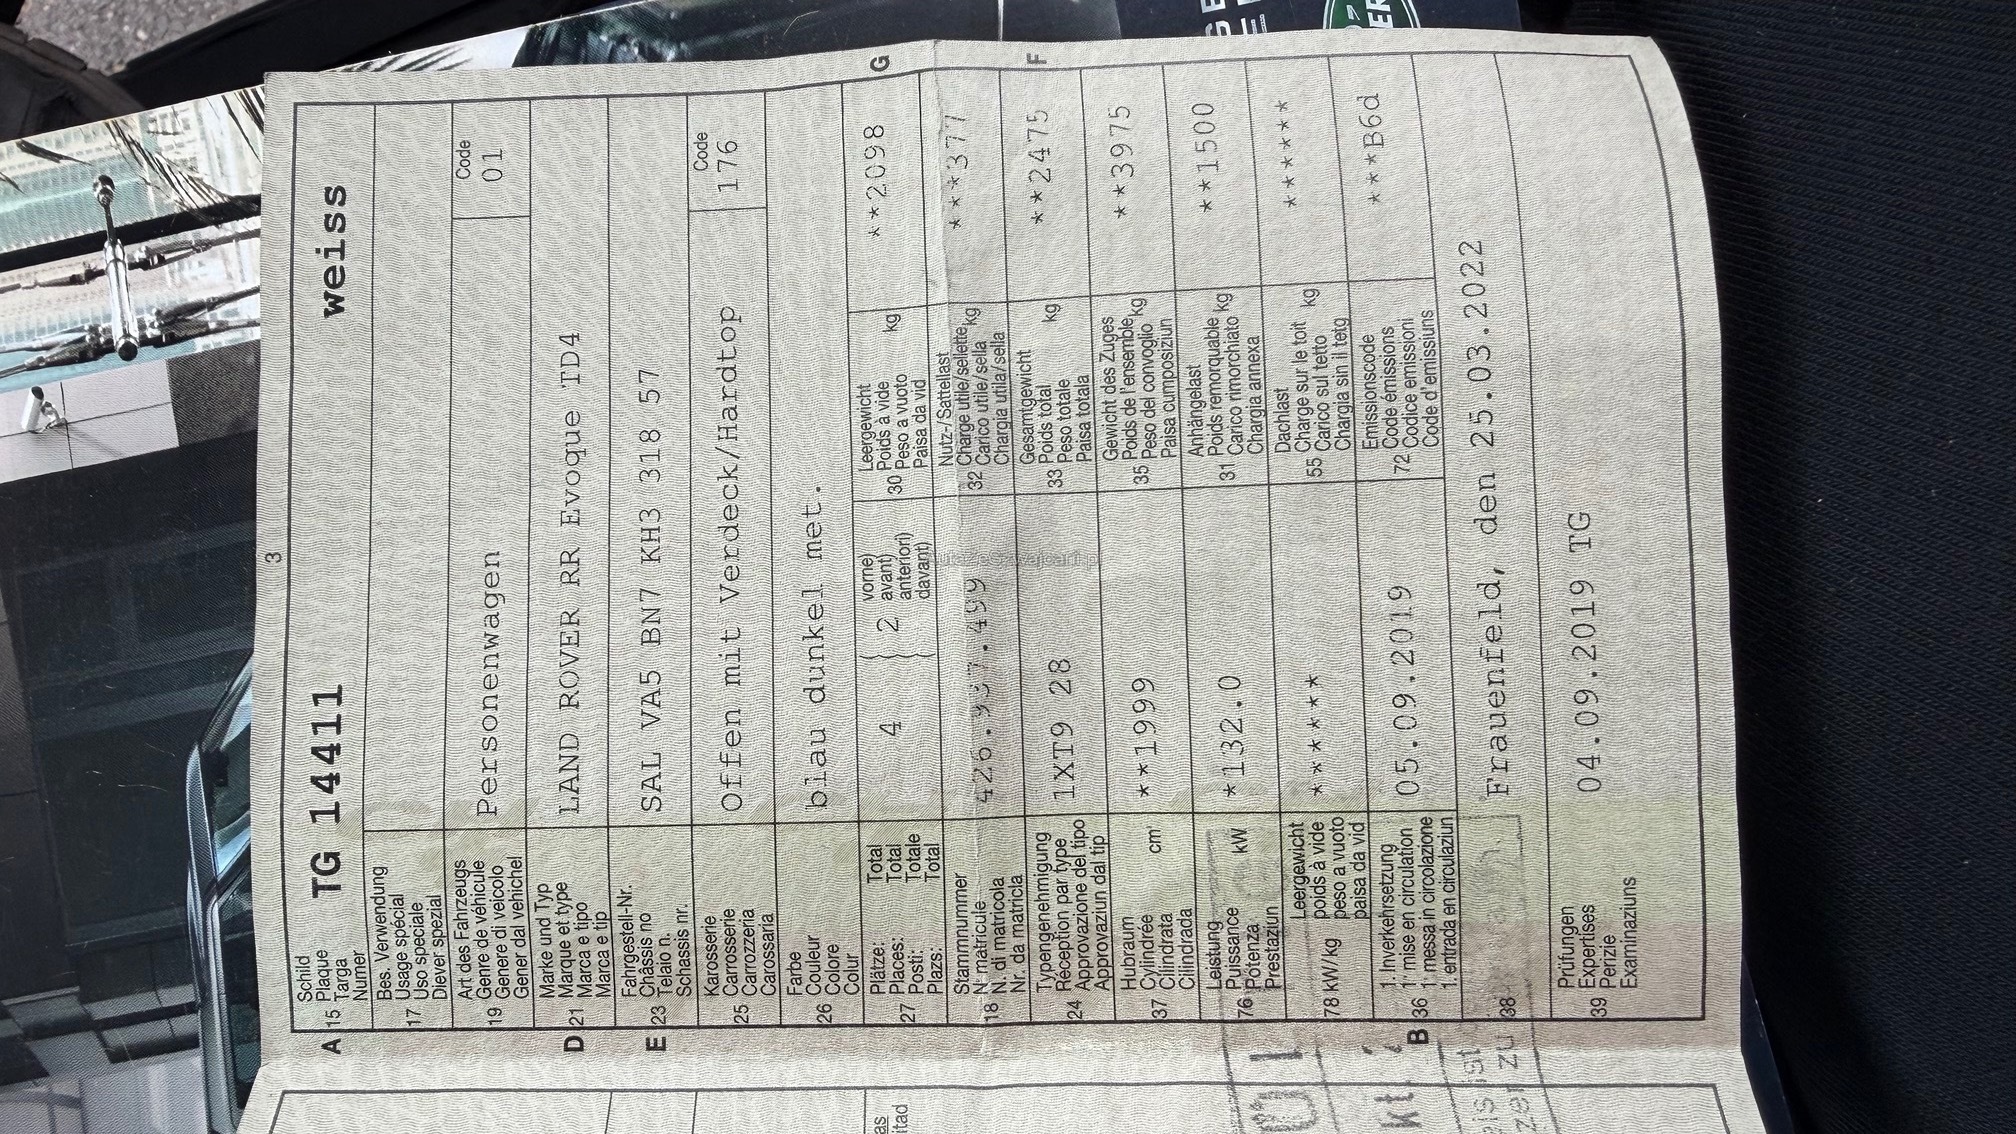 3
A
15
Schild
Plaque
Targa
Numer
TG 14411 weiss
17
Bes. Verwendung
Usage spécial
Uso speciale
Diever spezial
19
Art des Fahrzeugs
Genre de véhicule
Genere di veicolo
Gener dal vehichel
Personenwagen
Code
01
D 21
Marke und Typ
Marque et type
Marca e tipo
Marca e tip
LAND ROVER RR Evoque TD4
E 23
Fahrgestell-Nr.
Châssis no
Telaio n.
Schassis nr.
SAL VA5 BN7 KH3 318 57
25
Karosserie
Carrosserie
Carrozzeria
Carossaria
Offen mit Verdeck/Hardtop
Code
176
26
Farbe
Couleur
Colore
Colur
blau dunkel met.
27
Plätze: Total
Places: Total
Posti: Totale
Plazs: Total
4
2
vorne
avant
anteriori
davant
30
Leergewicht
Poids à vide
Peso a vuoto
Paisa da vid
kg
**2098
G
18
Stammnummer
N° matricule
N. di matricola
Nr. da matricla
426.937.499
32
Nutz-/Sattellast
Charge utile/sellette
Carico utile/sella
Chargia utila/sella
kg
***377
24
Typengenehmigung
Réception par type
Approvazione del tipo
Approvaziun dal tip
1XT9 28
33
Gesamtgewicht
Poids total
Peso totale
Paisa totala
kg
**2475
F
37
Hubraum
Cylindrée
Cilindrata
Cilindrada
cm³
**1999
35
Gewicht des Zuges
Poids de l'ensemble
Peso del convoglio
Paisa cumposiziun
kg
**3975
76
Leistung
Puissance
Potenza
Prestaziun
kW
*132.0
31
Anhängelast
Poids remorquable
Carico rimorchiato
Chargia annexa
kg
**1500
78 kW/kg
Leergewicht
poids à vide
peso a vuoto
paisa da vid
******
55
Dachlast
Charge sur le toit
Carico sul tetto
Chargia sin il tetg
kg
******
B 36
1. Inverkehrsetzung
1re mise en circulation
1a messa in circolazione
1. entrada en circulaziun
05.09.2019
72
Emissionscode
Code émissions
Codice emissioni
Code d'emissiuns
***B6d
38
Frauenfeld, den 25.03.2022
39
Prüfungen
Expertises
Perizie
Examinaziuns
04.09.2019 TG